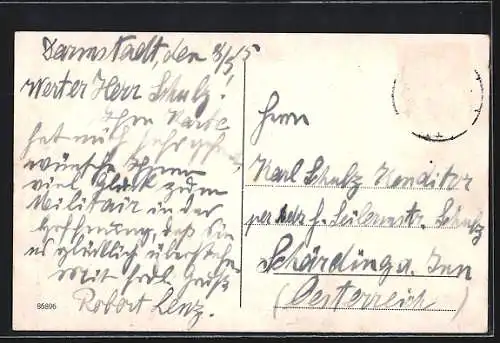 Darmstadt, den 8/5 15
Werter Herr Schulz!
Ihre Karte
hat mich sehr gefreut,
wünsche Ihnen
viel Glück zum
Militair in der
Hoffnung, daß Sie
es glücklich überstehn
Mit frdl. Gruß
Robert Lenz.
86896
Herrn
Karl Schulz Konditor
per Adr f. Seilermstr. Schulz
Schärding a. Inn
(Oesterreich)